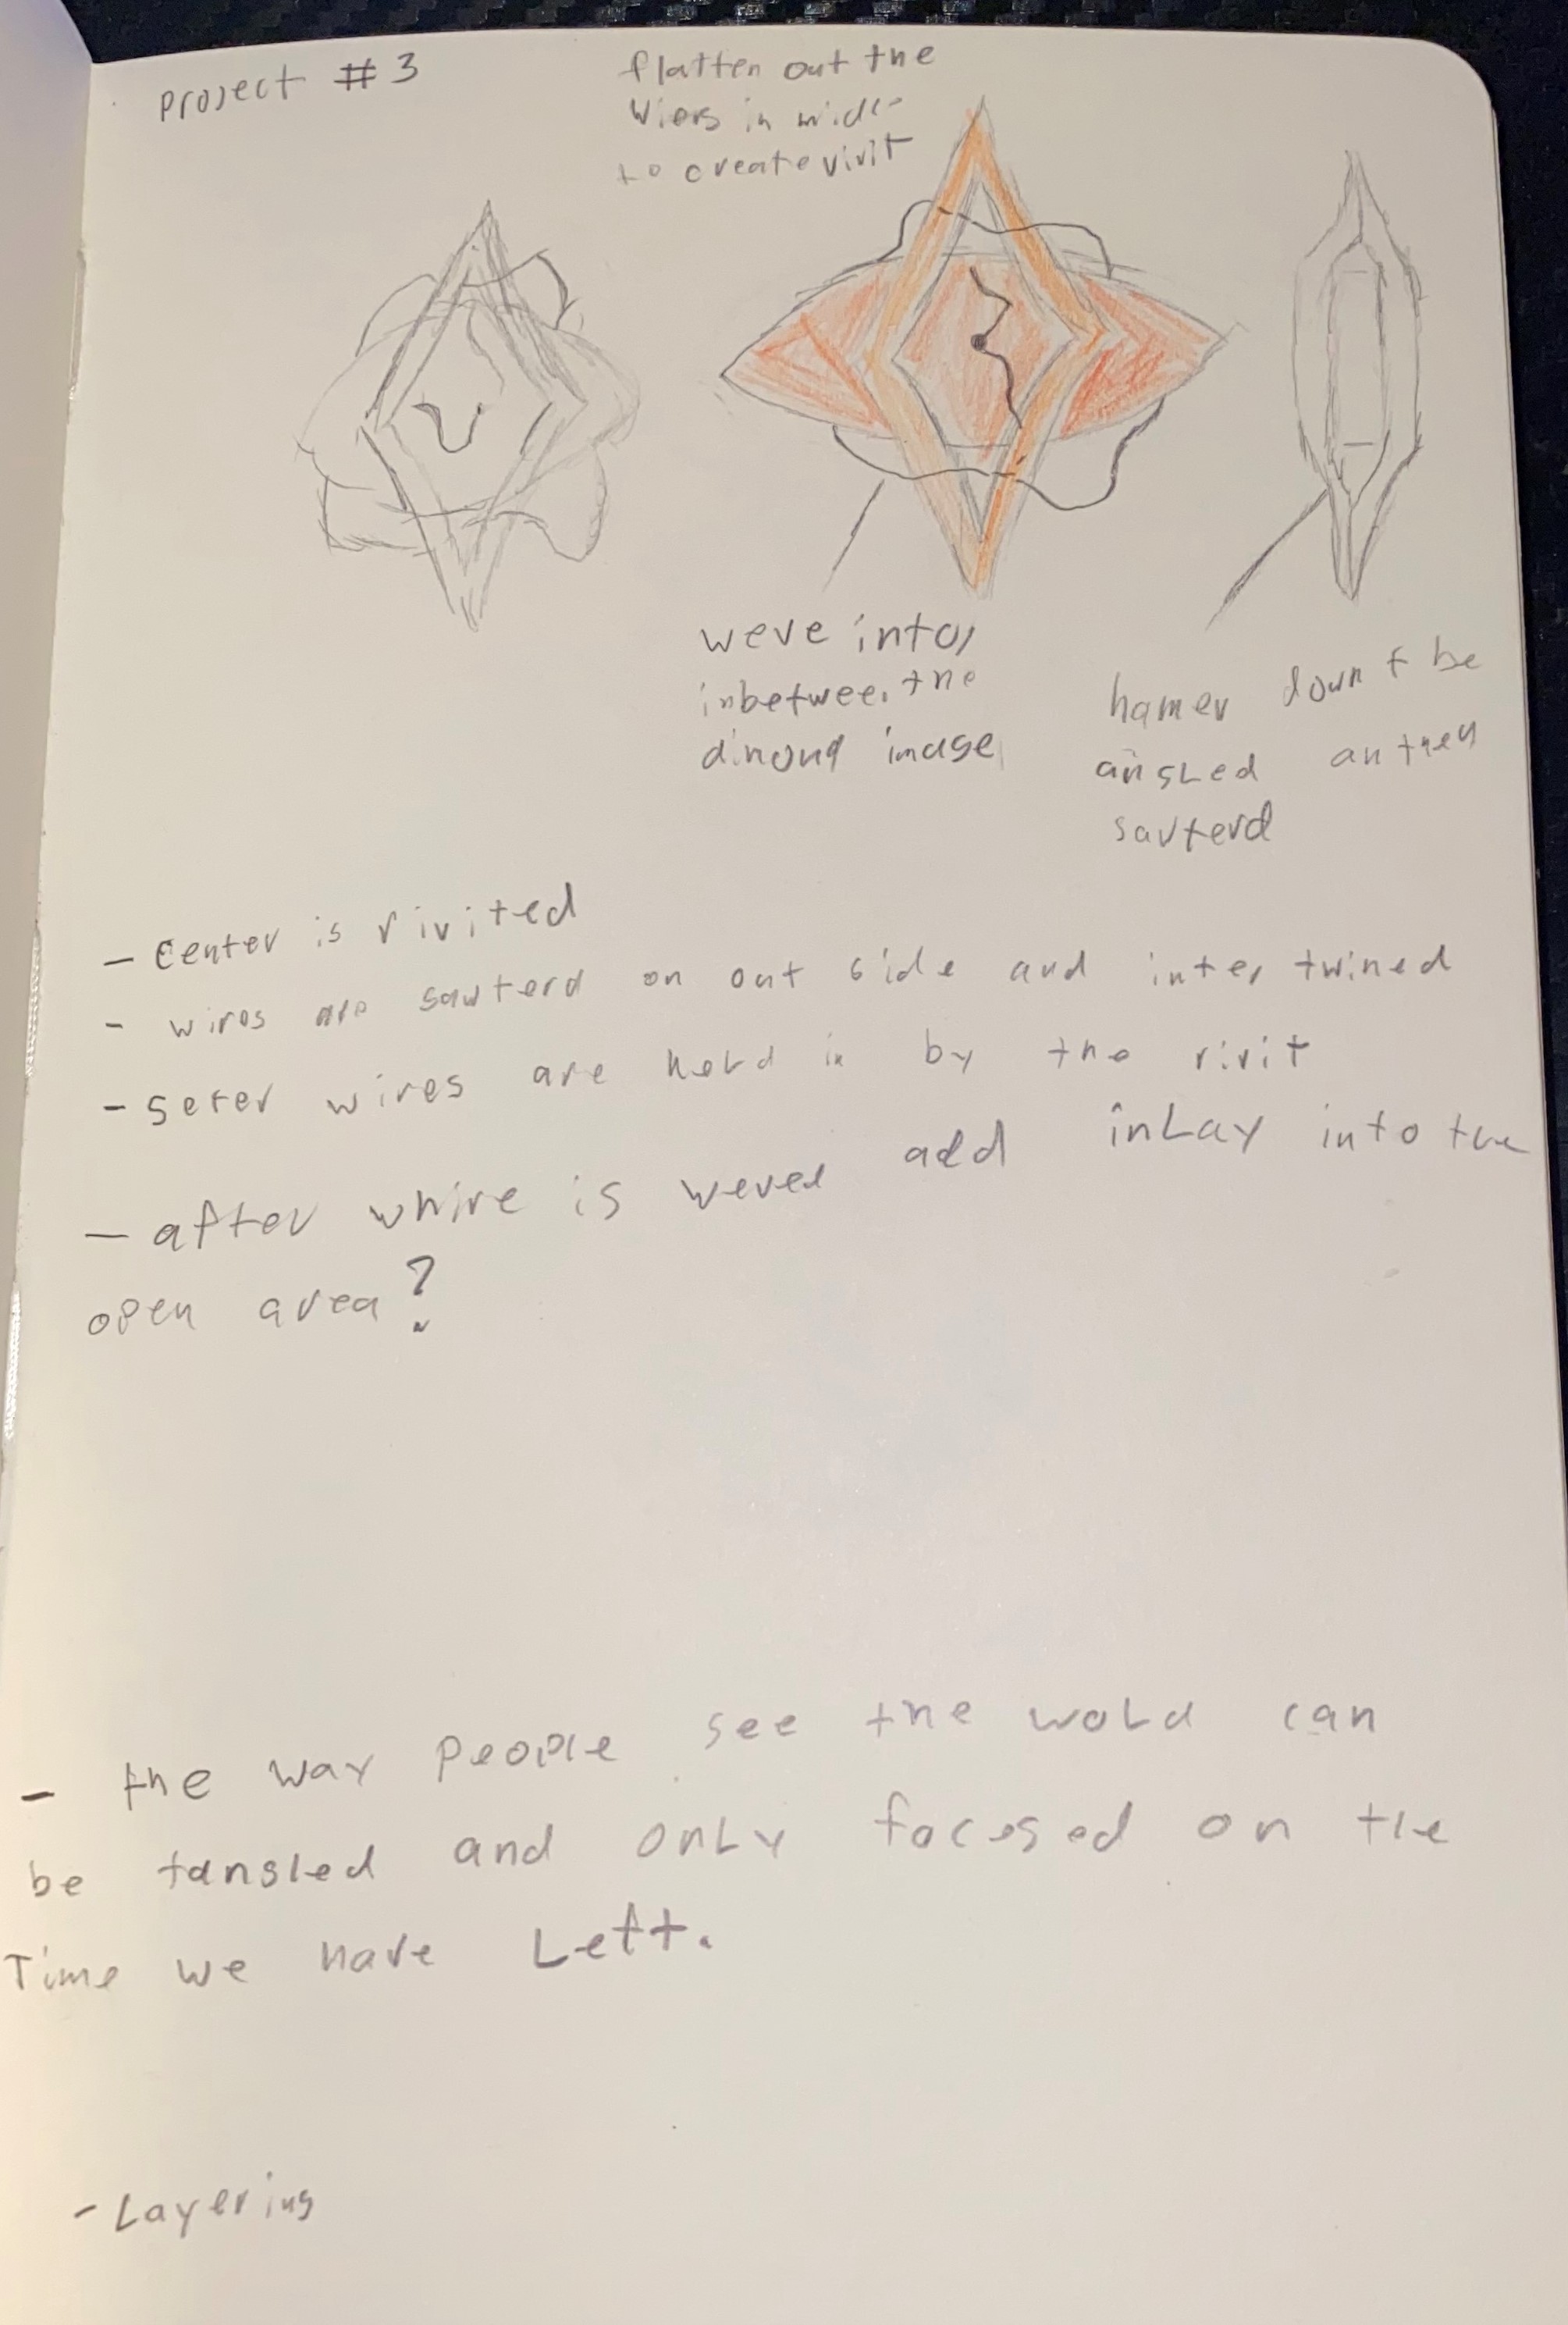 project #3
flatten out the
wiers in midle
to create rivit
weve into/
inbetween the
dimond image
hamer down t be
angled an then
sauterd
- Center is rivited
- wires are sawterd on out side and inter twined
- seter wires are held in by the rivit
- after whire is weved add inLay into the
open area?
- the way people see the wold can
be tangled and onLy focesed on the
Time we have Left.
- Layering